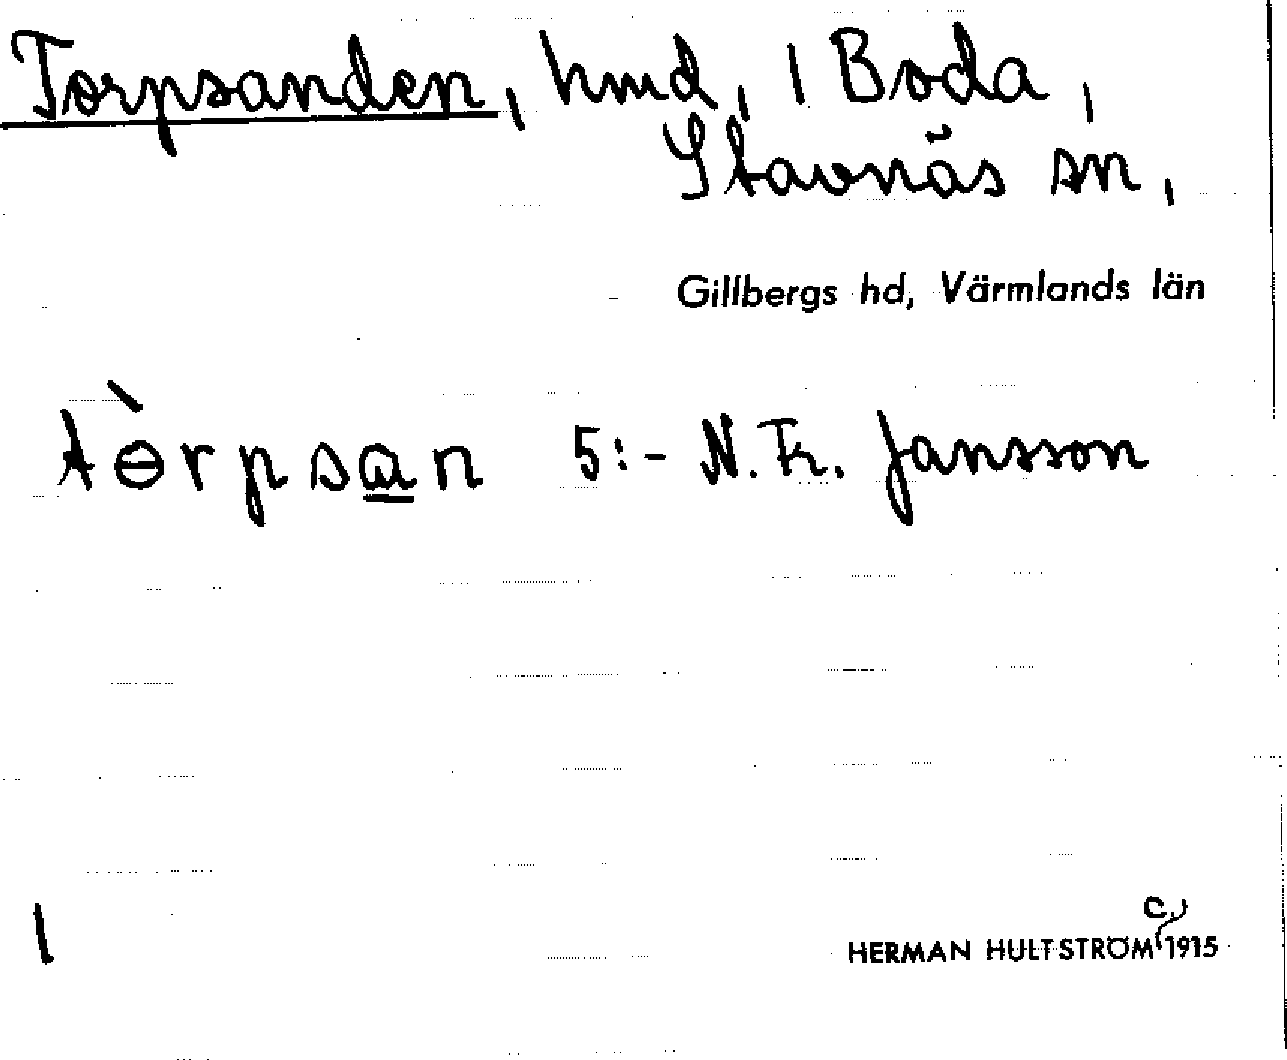 Torpsanden, hmd, i Boda,
Stavnäs sn,
Gillbergs hd, Värmlands län
tɵ̀rpsan 5:- N. Fr. Jansson
1
c.
HERMAN HULTSTRÖM 1915